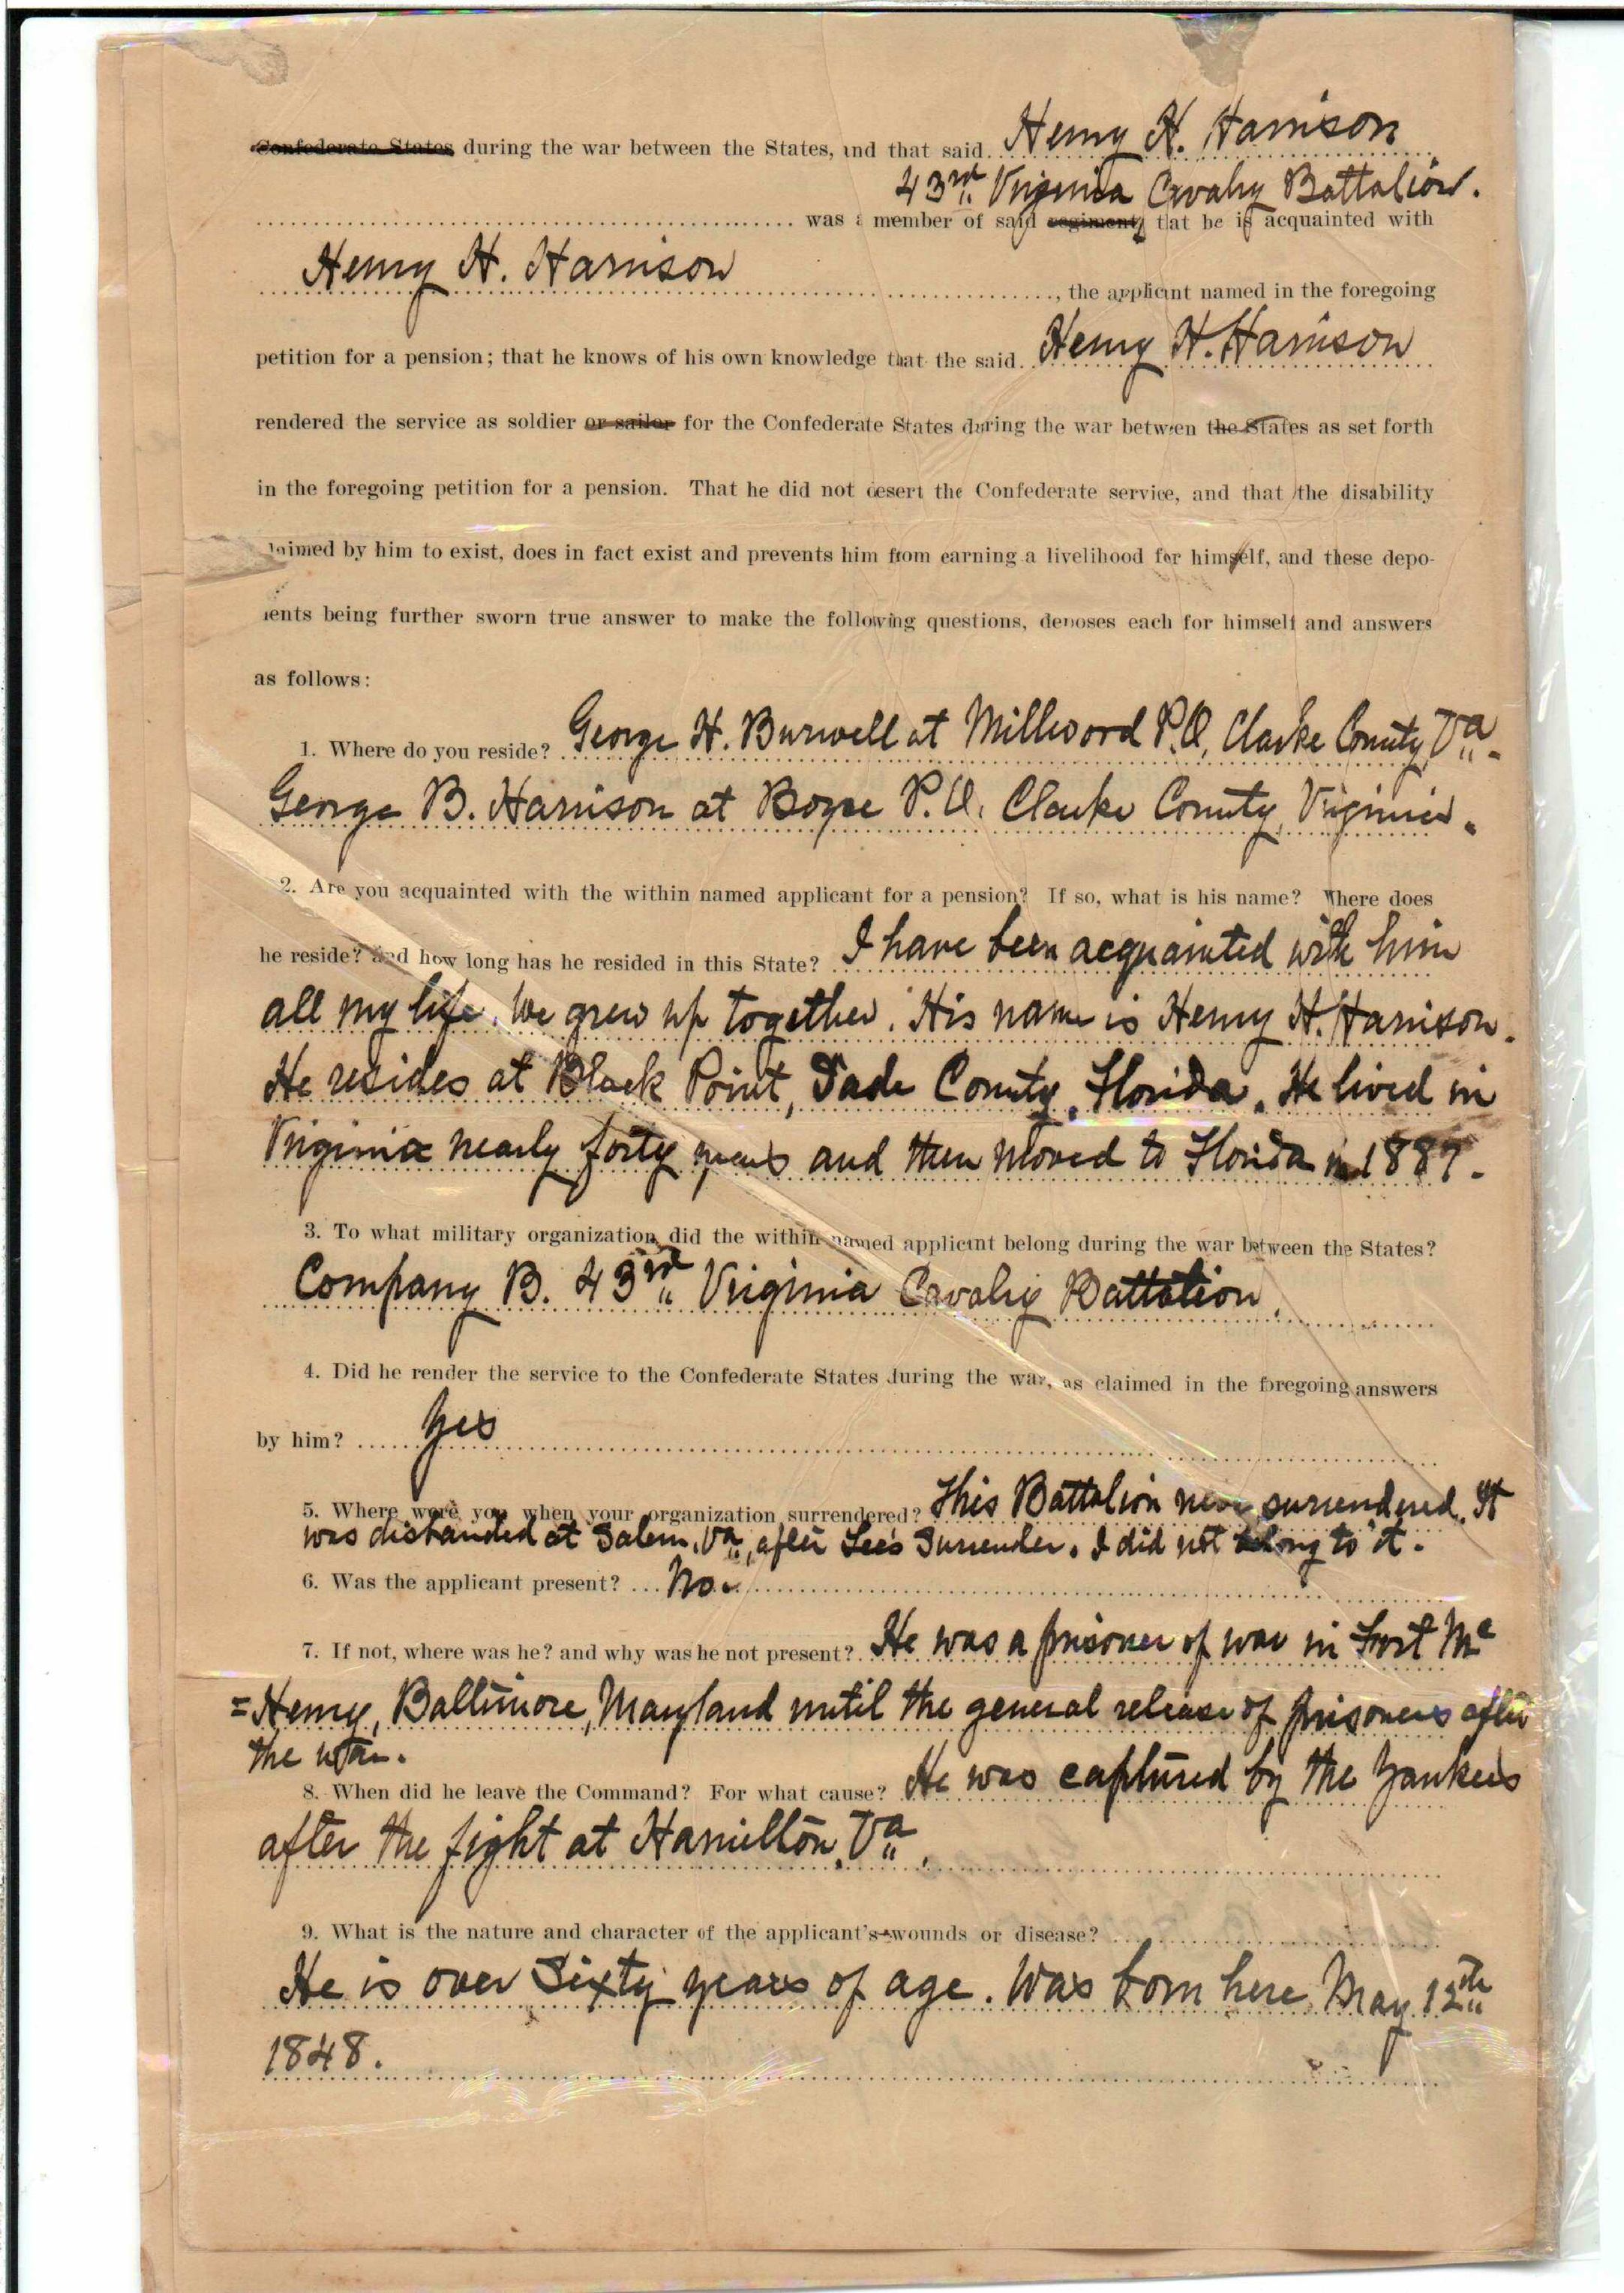 Confederate States during the war between the States, and that said Henry H. Harrison
43rd Virginia Cavalry Battalion.
was a member of said regiment, that he is acquainted with
Henry H. Harrison, the applicant named in the foregoing
petition for a pension; that he knows of his own knowledge that the said Henry H. Harrison
rendered the service as soldier or sailor for the Confederate States during the war between the States as set forth
in the foregoing petition for a pension. That he did not desert the Confederate service, and that the disability
claimed by him to exist, does in fact exist and prevents him from earning a livelihood for himself, and these depo-
nents being further sworn true answer to make the following questions, deposes each for himself and answers
as follows:
1. Where do you reside? George H. Burwell at Millwood P.O. Clarke County, Va.
George B. Harrison at Boyce P.O. Clarke County, Virginia.
2. Are you acquainted with the within named applicant for a pension? If so, what is his name? Where does
he reside? and how long has he resided in this State? I have been acquainted with him
all my life. We grew up together. His name is Henry H. Harrison.
He resides at Black Point, Dade County, Florida. He lived in
Virginia nearly forty years and then moved to Florida in 1887.
3. To what military organization did the within named applicant belong during the war between the States?
Company B. 43rd Virginia Cavalry Battalion.
4. Did he render the service to the Confederate States during the war, as claimed in the foregoing answers
by him? Yes
5. Where were you when your organization surrendered? This Battalion never surrendered. It
was disbanded at Salem, Va., after Lee's Surrender. I did not belong to it.
6. Was the applicant present? No.
7. If not, where was he? and why was he not present? He was a prisoner of war in Fort Mc
=Henry, Baltimore, Maryland until the general release of prisoners after
the war.
8. When did he leave the Command? For what cause? He was captured by the Yankees
after the fight at Hamilton, Va.
9. What is the nature and character of the applicant's wounds or disease?
He is over Sixty years of age. Was born here May 12th
1848.